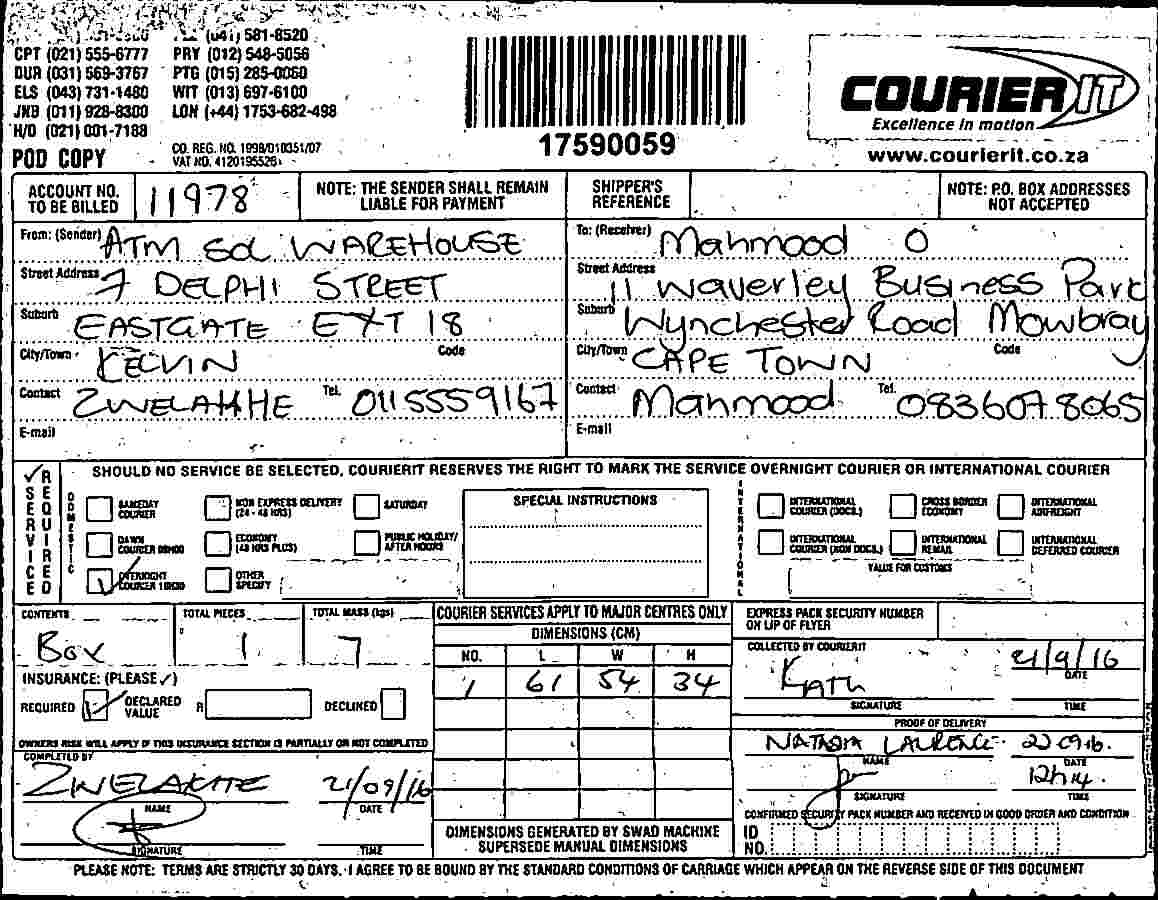 (041) 581-8520
CPT (021) 555-6777 PRY (012) 548-5056
DUR (031) 569-3767 PTG (015) 285-0060
ELS (043) 731-1480 WIT (013) 697-6100
JNB (011) 928-8300 LON (+44) 1753-682-498
H/O (021) 001-7188
POD COPY
CO. REG. NO. 1998/010351/07
VAT NO. 4120195526
17590059
COURIER IT
Excellence in motion
www.courierit.co.za
ACCOUNT NO. TO BE BILLED 11978
NOTE: THE SENDER SHALL REMAIN LIABLE FOR PAYMENT
SHIPPER'S REFERENCE
NOTE: P.O. BOX ADDRESSES NOT ACCEPTED
From: (Sender) ATM SOL WAREHOUSE
Street Address 7 DELPHI STREET
Suburb EASTGATE EXT 18
City/Town KELVIN Code
Contact ZWELAKHE Tel. 0115559167
E-mail
To: (Receiver) Mahmood O
Street Address 11 Waverley Business Park
Suburb Wynchester Road Mowbray
City/Town CAPE TOWN Code
Contact Mahmood Tel. 0836078065
E-mail
✓ SERVICE REQUIRED
SHOULD NO SERVICE BE SELECTED, COURIERIT RESERVES THE RIGHT TO MARK THE SERVICE OVERNIGHT COURIER OR INTERNATIONAL COURIER
DOMESTIC
SAMEDAY COURIER
NON EXPRESS DELIVERY (24 - 48 HRS)
SATURDAY
DAWN COURIER 08H00
ECONOMY (48 HRS PLUS)
PUBLIC HOLIDAY/ AFTER HOURS
✓ OVERNIGHT COURIER 10H30
OTHER SPECIFY
SPECIAL INSTRUCTIONS
INTERNATIONAL
INTERNATIONAL COURIER (DOCS.)
CROSS BORDER ECONOMY
INTERNATIONAL AIRFREIGHT
INTERNATIONAL COURIER (NON DOCS.)
INTERNATIONAL REMAIL
INTERNATIONAL DEFERRED COURIER
VALUE FOR CUSTOMS
CONTENTS Box
TOTAL PIECES 1
TOTAL MASS (kgs) 7
INSURANCE: (PLEASE ✓)
REQUIRED ✓ DECLARED VALUE R DECLINED
OWNERS RISK WILL APPLY IF THIS INSURANCE SECTION IS PARTIALLY OR NOT COMPLETED
COMPLETED BY
ZWELAKHE 21/09/16
NAME DATE
SIGNATURE TIME
COURIER SERVICES APPLY TO MAJOR CENTRES ONLY
DIMENSIONS (CM)
NO. L W H
1 61 54 34
DIMENSIONS GENERATED BY SWAD MACHINE SUPERSEDE MANUAL DIMENSIONS
EXPRESS PACK SECURITY NUMBER ON LIP OF FLYER
COLLECTED BY COURIERIT
21/9/16
DATE
SIGNATURE TIME
PROOF OF DELIVERY
NATASHA LAURENCE 22 09 16.
NAME DATE
12h14.
SIGNATURE TIME
CONFIRMED SECURITY PACK NUMBER AND RECEIVED IN GOOD ORDER AND CONDITION
ID NO.
PLEASE NOTE: TERMS ARE STRICTLY 30 DAYS. I AGREE TO BE BOUND BY THE STANDARD CONDITIONS OF CARRIAGE WHICH APPEAR ON THE REVERSE SIDE OF THIS DOCUMENT